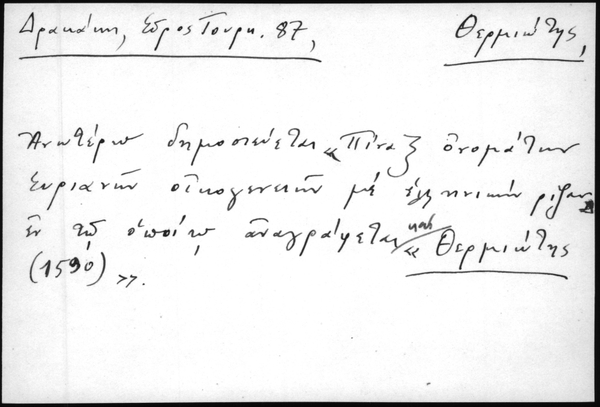 Δρακάκη, Σύρος Τουρκ. 87, Θερμιώτης,
Ἀνωτέρω δημοσιεύεται «Πίναξ ὀνομάτων
Συριανῶν οἰκογενειῶν μέ ἑλληνικήν ρίζαν
ἐν τῷ ὁποίῳ ἀναγράφεται καί « Θερμιώτης
(1590) ».